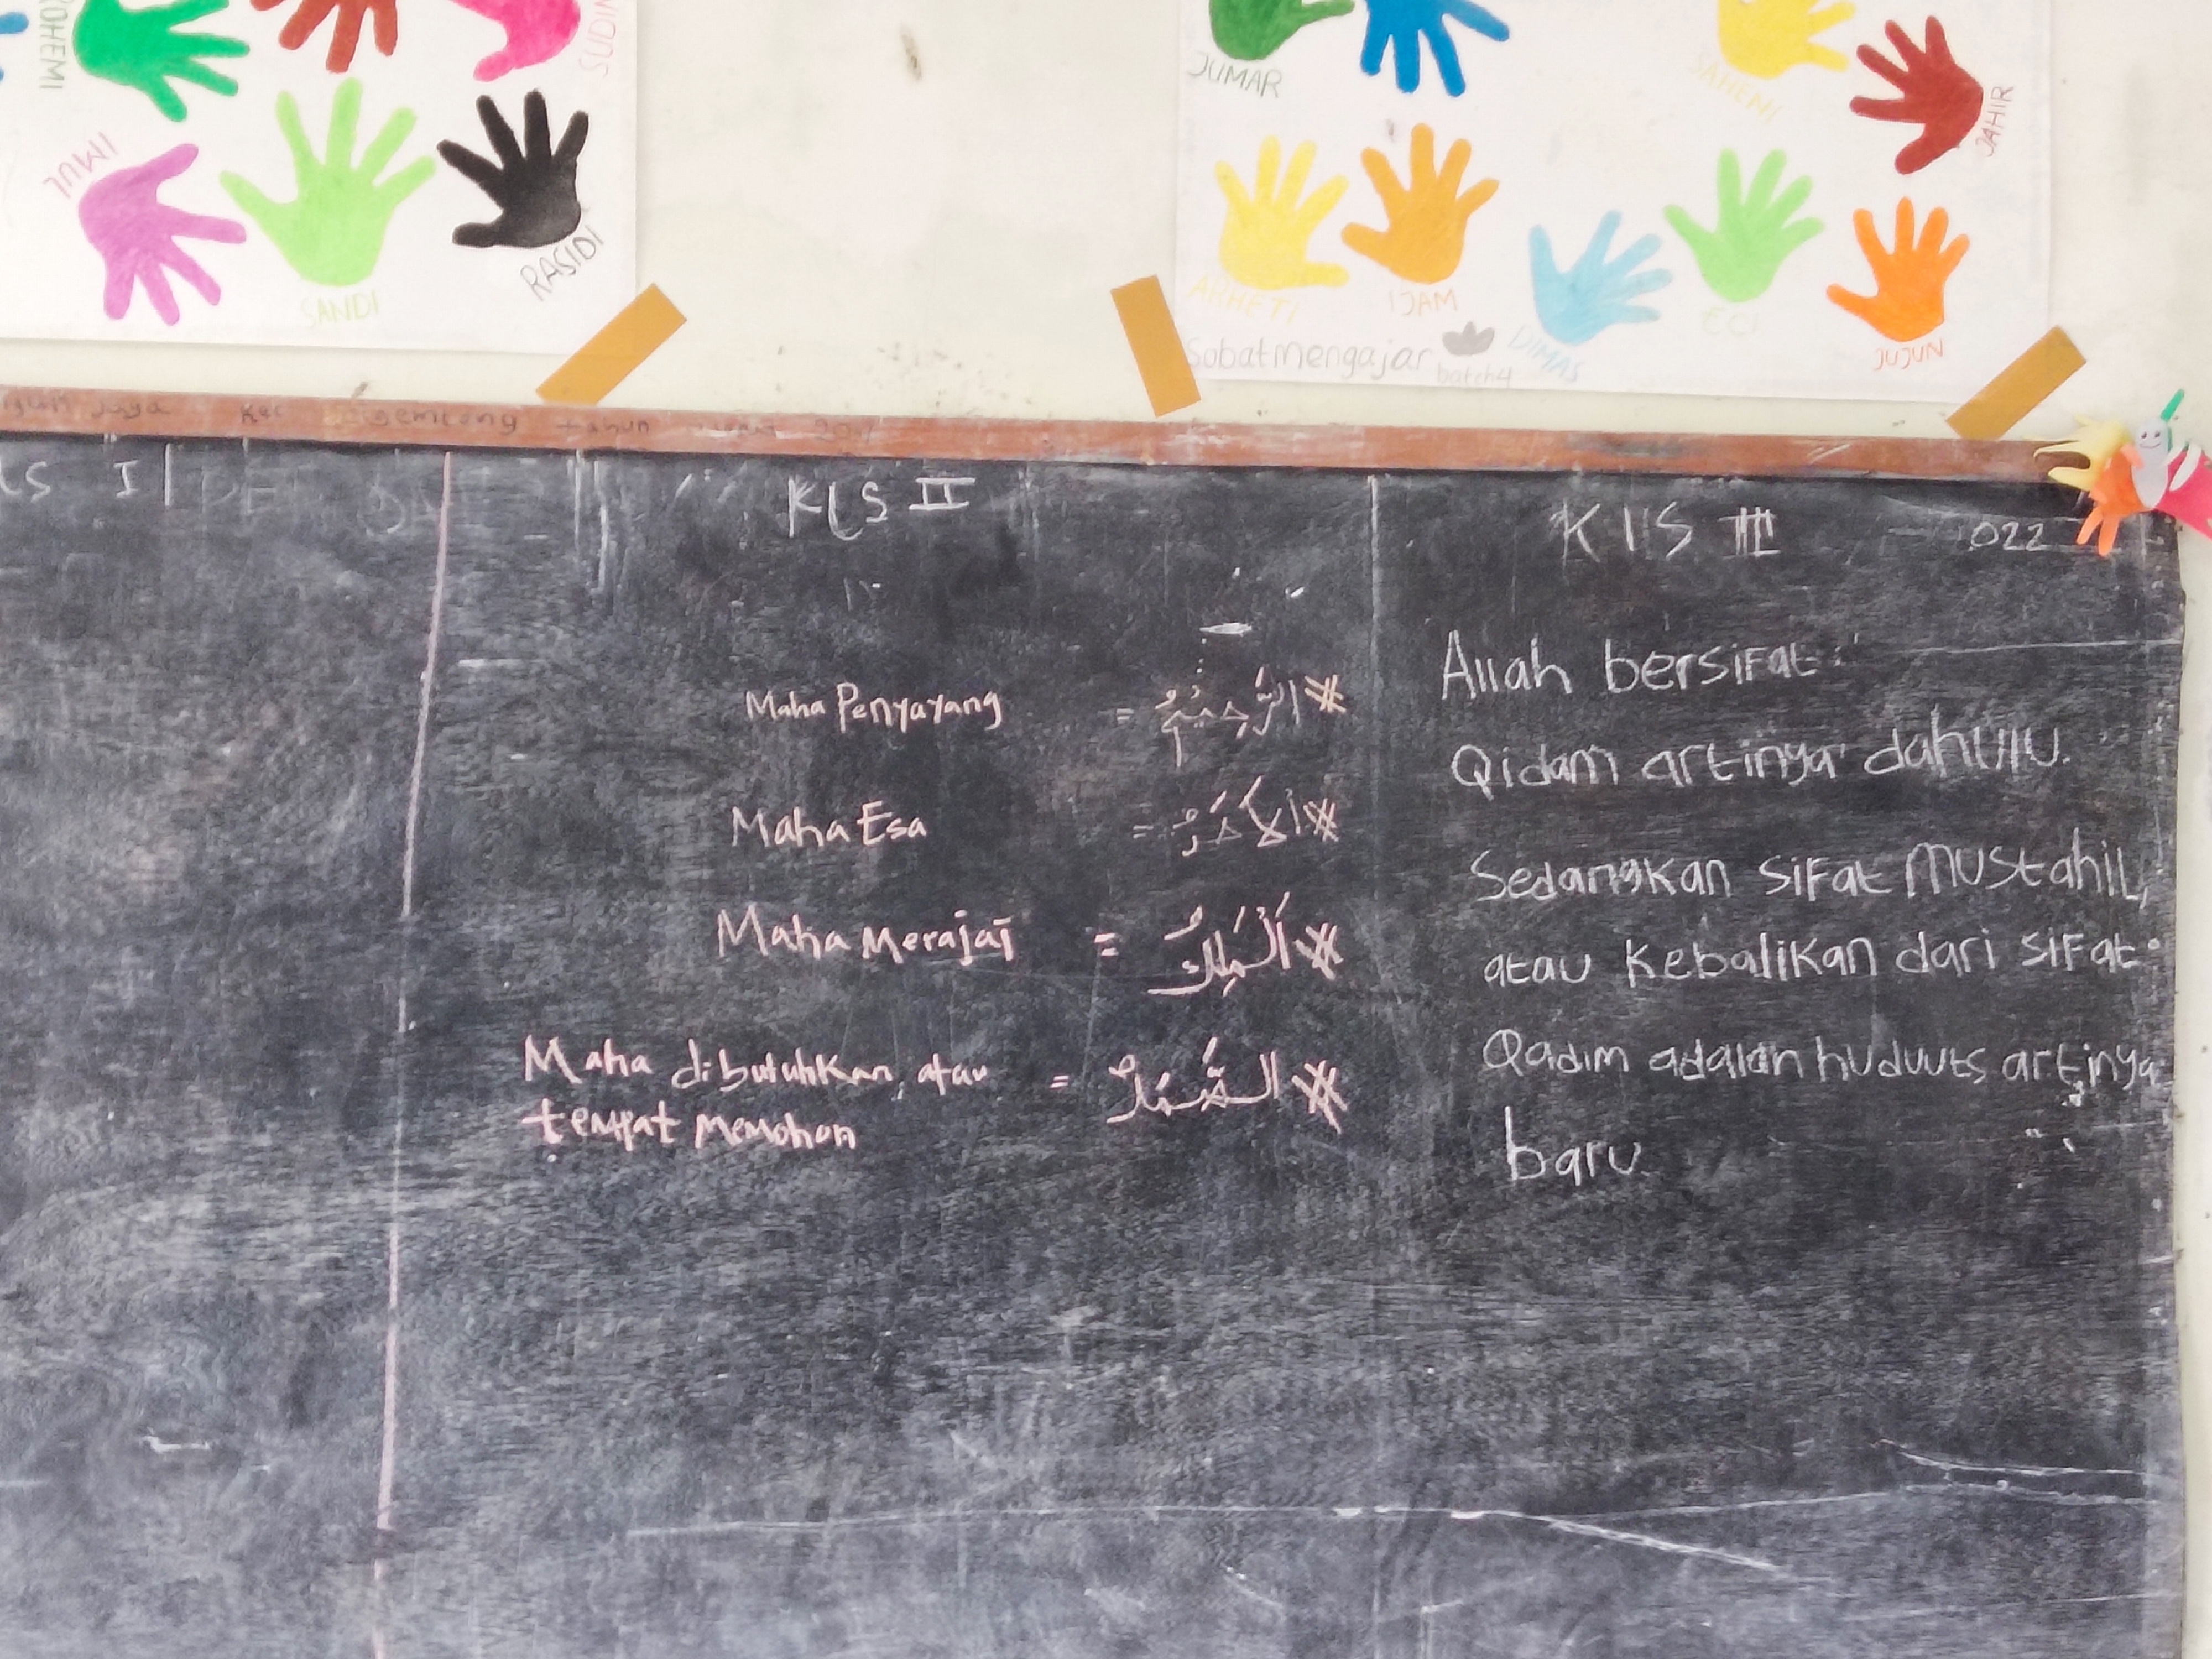 ROHEMI
SUDIN
JUMAR
SAHENI
JAHIR
IMUL
SANDI
RASIDI
ARHETI
IJAM
DIMAS
ECI
JUJUN
Sobatmengajar
batch4
KLS II
Maha Penyayang = الرَّحِيْمُ
Maha Esa = اَلْاَحَدُ
Maha Merajai = اَلْمَلِكُ
Maha dibutuhkan, atau = الصَّمَدُ
tempat memohon
KLS III
022
Allah bersifat:
Qidam artinya dahulu.
Sedangkan sifat mustahil,
atau kebalikan dari sifat
Qadim adalah huduuts artinya
baru